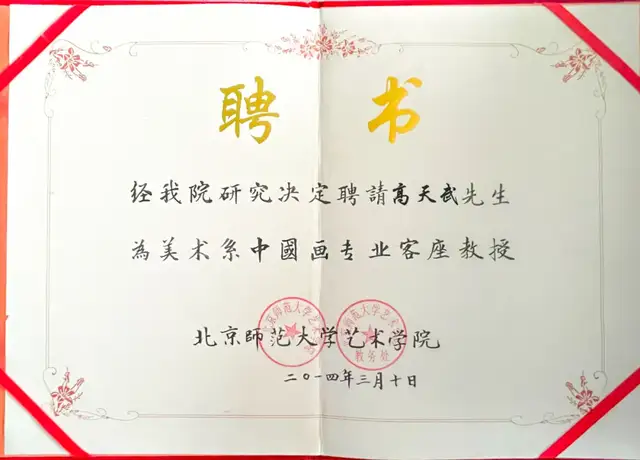 聘书
经我院研究决定聘請高天武先生
為美术系中國画专业客座教授
北京师范大学艺术学院
二〇一四年三月十日
教务处